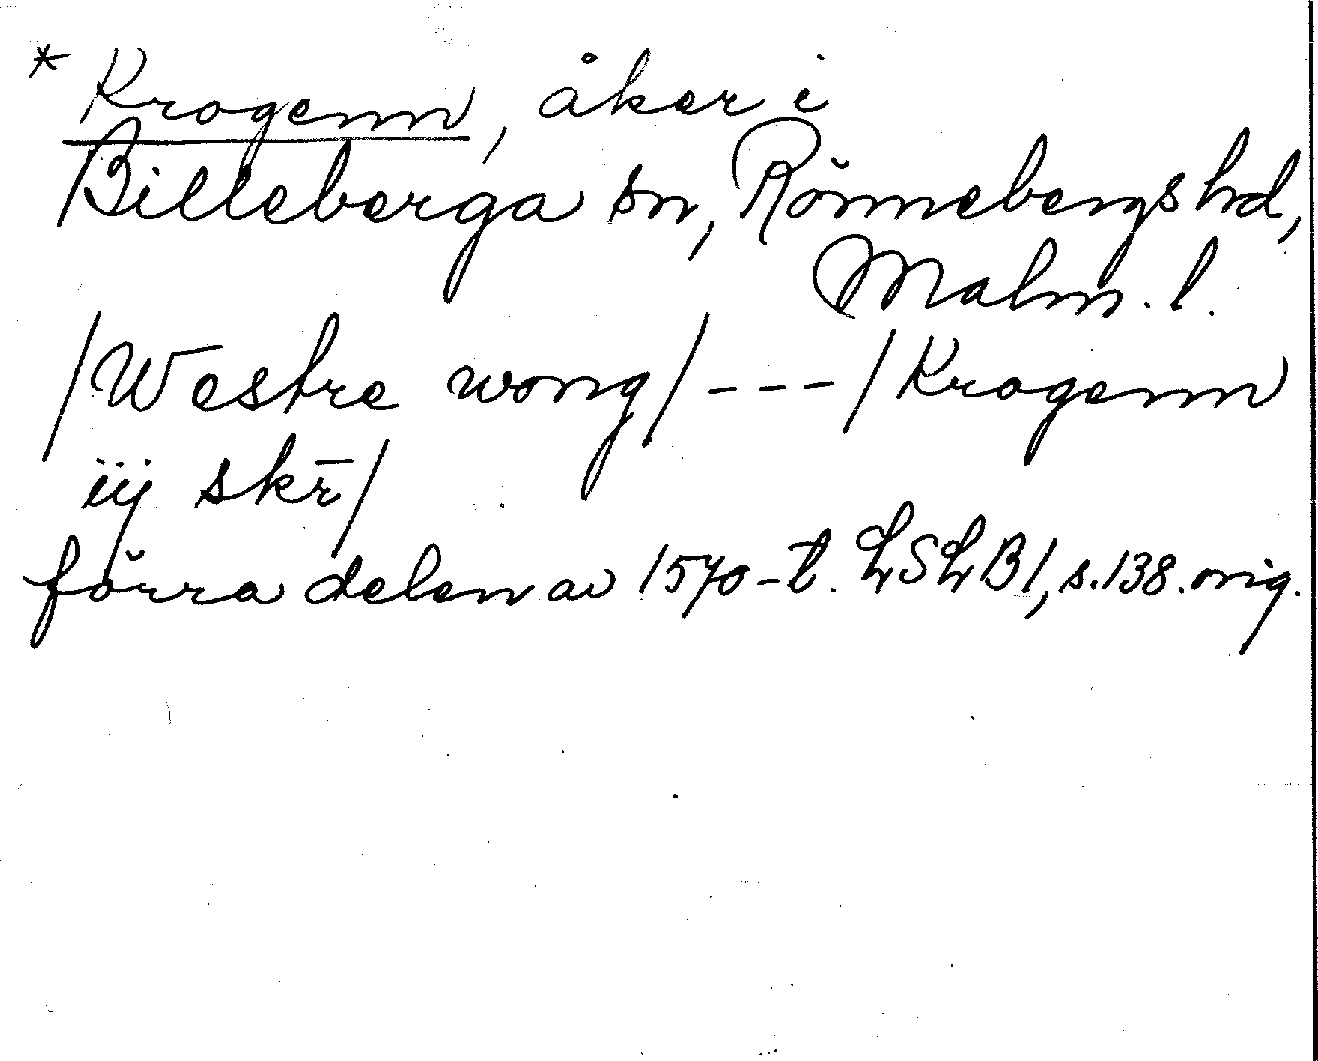 * Krogenn, åker i
Billeberga sn, Rönnebergs hd,
Malm. l.
/Westre wong/ --- /Krogenn
iij skr̄/
förra delen av 1570-t. LSLB1, s. 138. orig.